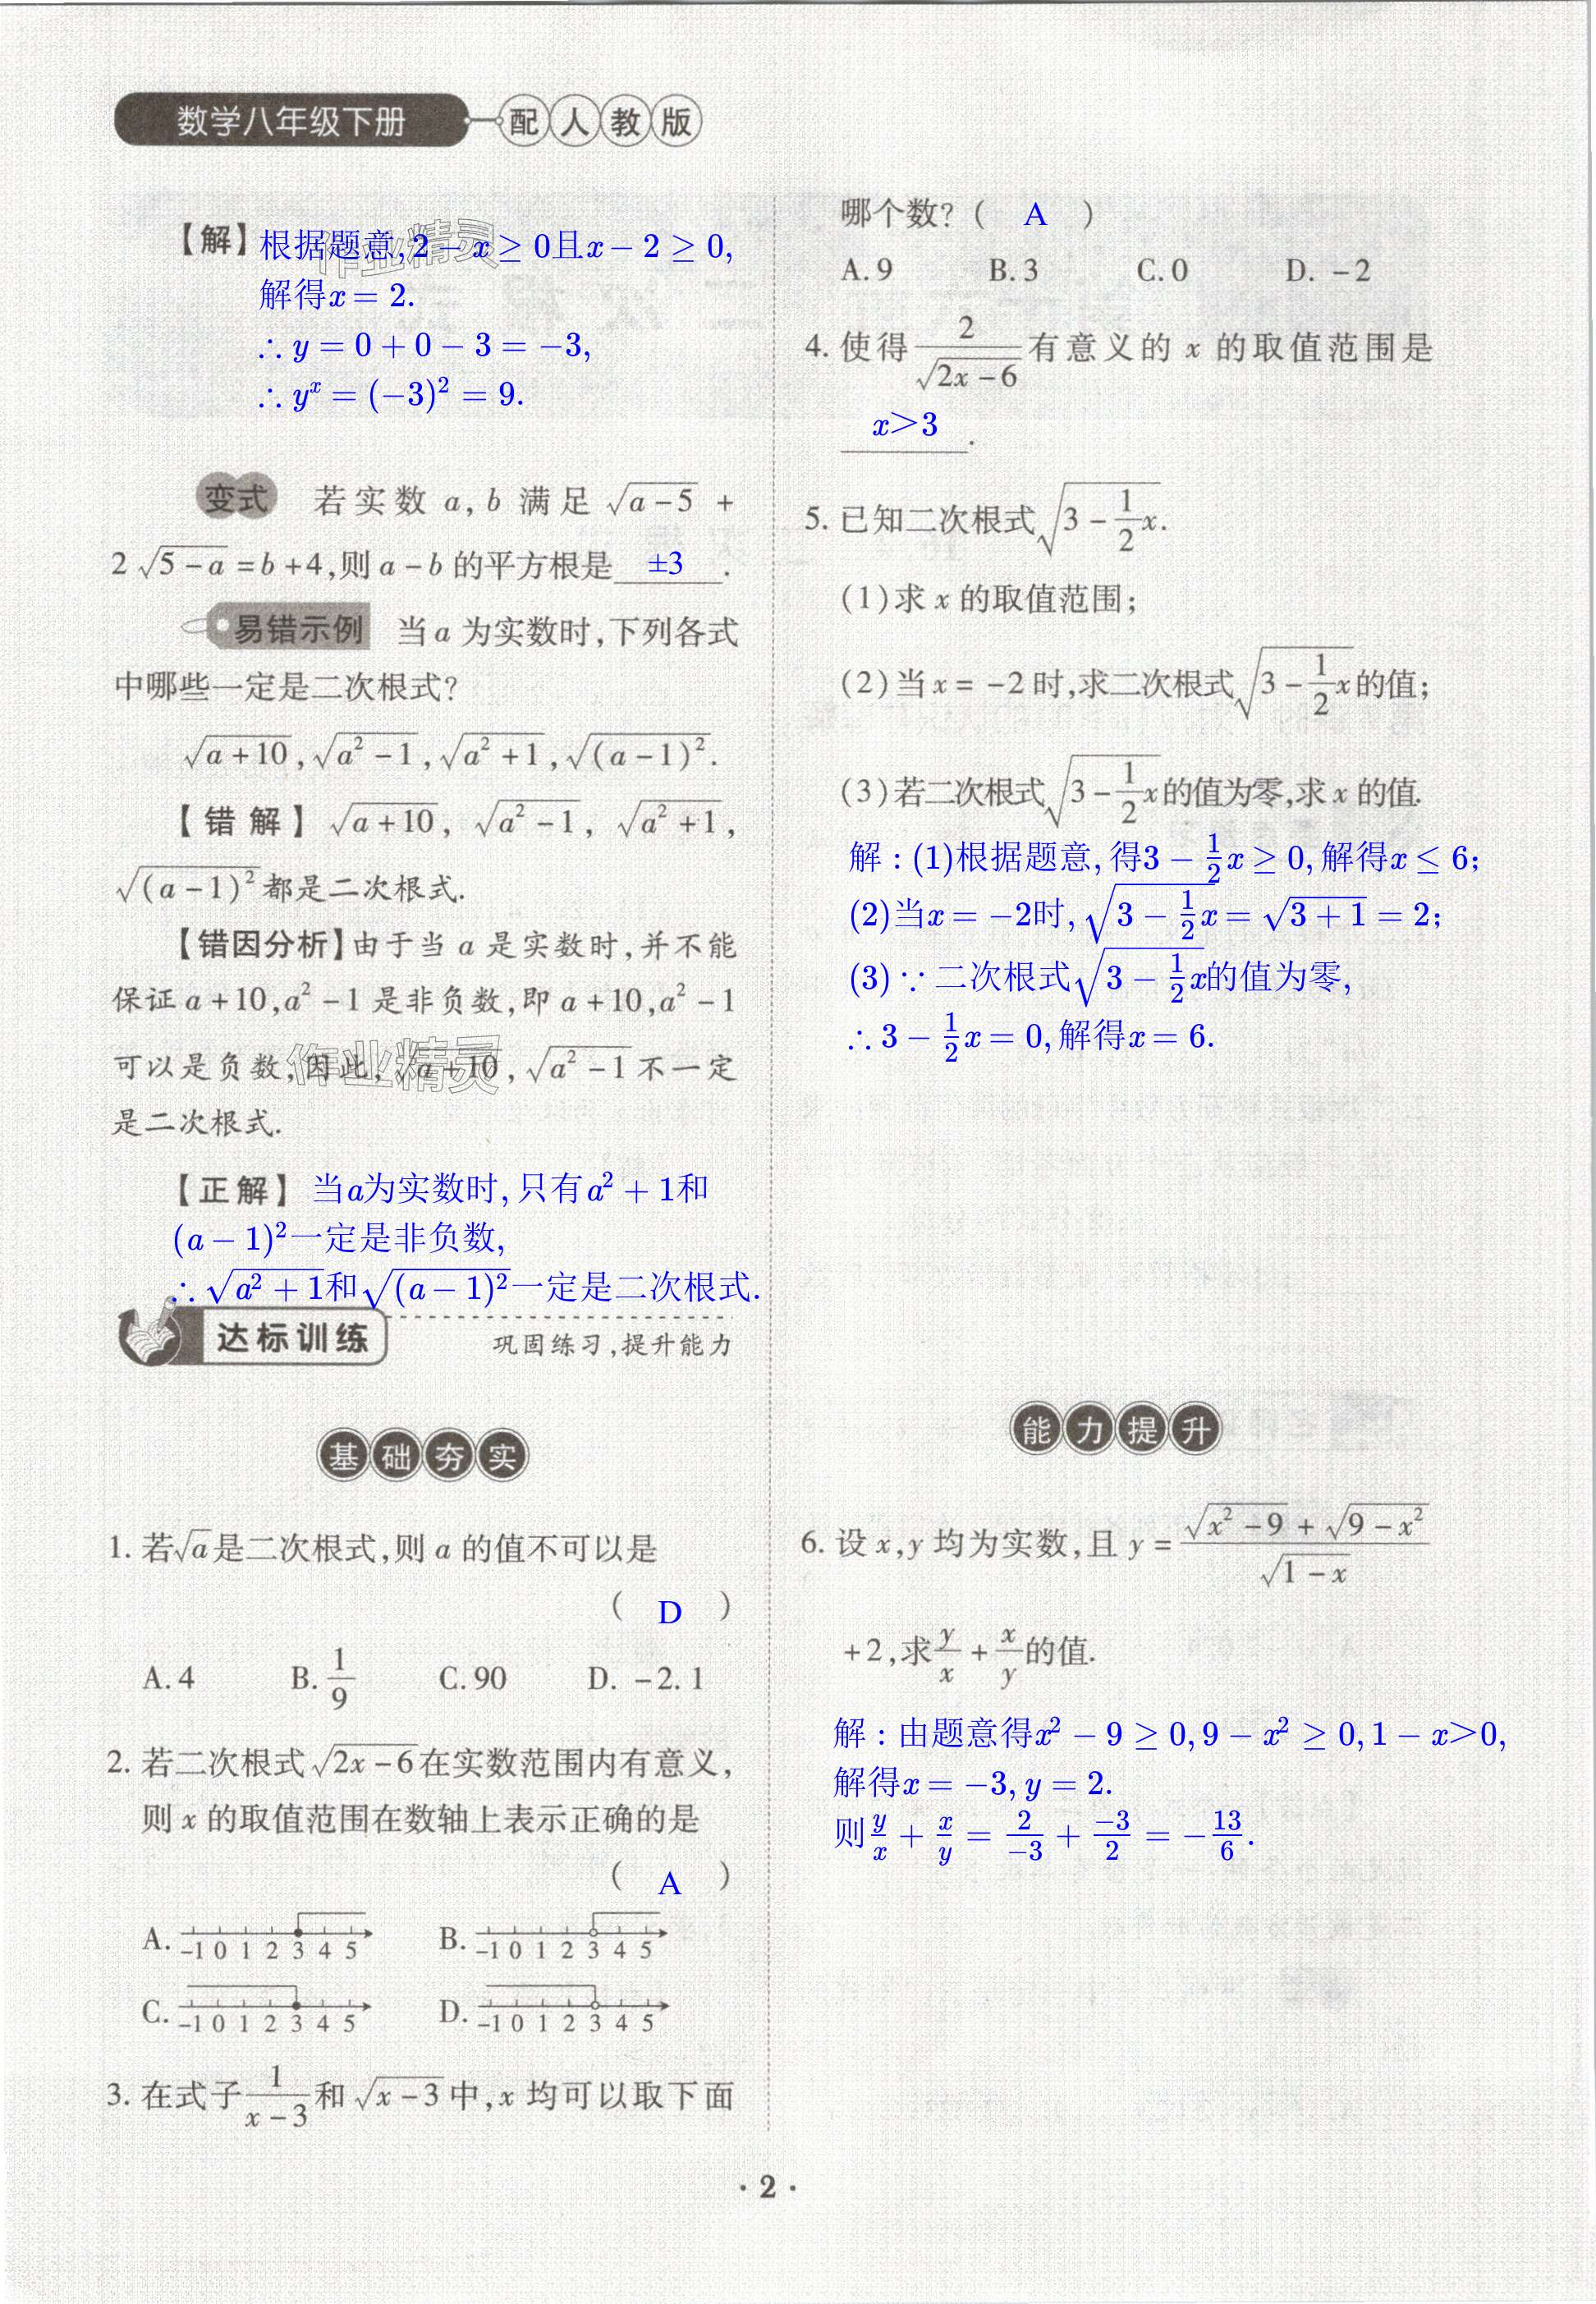 数学八年级下册 配人教版
【解】根据题意,2－x≥0且x－2≥0,
解得x＝2.
∴y＝0＋0－3＝－3,
∴yˣ＝(－3)²＝9.
变式 若实数 a,b 满足 √(a－5) ＋
2√(5－a)＝b＋4,则 a－b 的平方根是 ±3 .
易错示例 当 a 为实数时,下列各式
中哪些一定是二次根式?
√(a＋10),√(a²－1),√(a²＋1),√((a－1)²).
【错解】√(a＋10), √(a²－1), √(a²＋1),
√((a－1)²)都是二次根式.
【错因分析】由于当 a 是实数时,并不能
保证 a＋10,a²－1 是非负数,即 a＋10,a²－1
可以是负数,因此,√(a＋10),√(a²－1)不一定
是二次根式.
【正解】当a为实数时,只有a²＋1和
(a－1)²一定是非负数,
∴√(a²＋1)和√((a－1)²)一定是二次根式.
达标训练 巩固练习,提升能力
基础夯实
1. 若√a是二次根式,则 a 的值不可以是
( D )
A. 4 B. 1/9 C. 90 D. －2.1
2. 若二次根式√(2x－6)在实数范围内有意义,
则 x 的取值范围在数轴上表示正确的是
( A )
A. －1 0 1 2 3 4 5 B. －1 0 1 2 3 4 5
C. －1 0 1 2 3 4 5 D. －1 0 1 2 3 4 5
3. 在式子 1/(x－3) 和 √(x－3) 中,x 均可以取下面
哪个数? ( A )
A. 9 B. 3 C. 0 D. －2
4. 使得 2/√(2x－6) 有意义的 x 的取值范围是
x>3 .
5. 已知二次根式√(3－1/2x).
(1)求 x 的取值范围;
(2)当 x＝－2 时,求二次根式√(3－1/2x)的值;
(3)若二次根式√(3－1/2x)的值为零,求 x 的值.
解:(1)根据题意,得3－1/2x≥0,解得x≤6;
(2)当x＝－2时,√(3－1/2x)＝√(3＋1)＝2;
(3)∵二次根式√(3－1/2x)的值为零,
∴3－1/2x＝0,解得x＝6.
能力提升
6. 设 x,y 均为实数,且 y＝(√(x²－9)＋√(9－x²))/√(1－x)
＋2,求 y/x＋x/y 的值.
解:由题意得x²－9≥0,9－x²≥0,1－x>0,
解得x＝－3,y＝2.
则y/x＋x/y＝2/－3＋－3/2＝－13/6.
· 2 ·
作业精灵
作业精灵